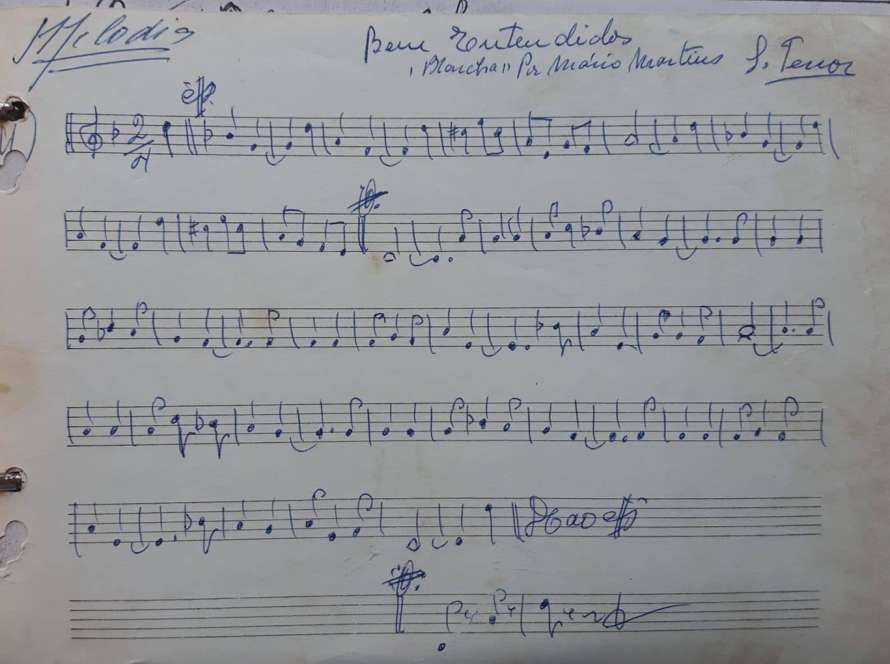 Melodia
Bem Entendidos
S. Tenor
"Marcha" Por Mário Martins
2/4
D.C. ao